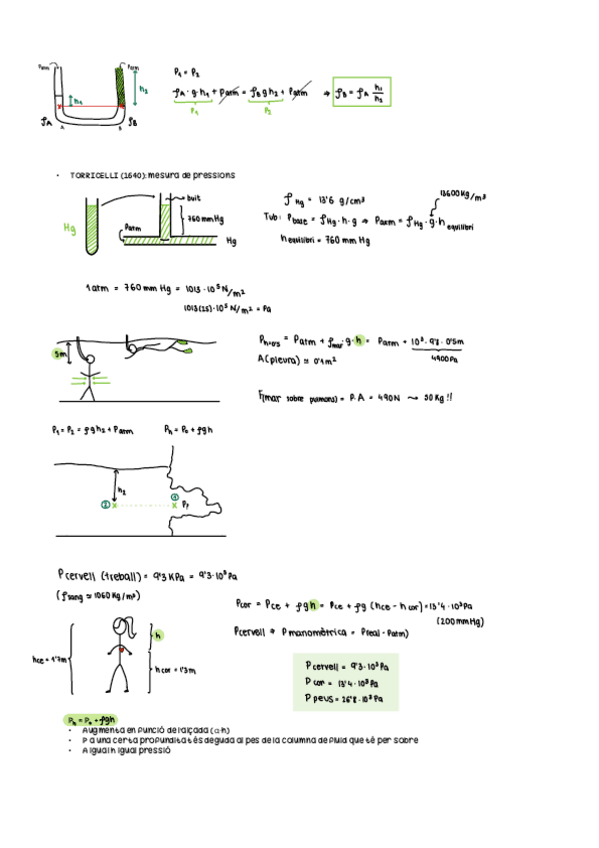 Patm Patm
h1 h2
ρA ρB
A B
P1 = P2
ρA · g·h1 + Patm = ρB g h2 + Patm → ρB = ρA h1/h2
P1 P2
• TORRICELLI (1640): mesura de pressions
buit
760 mm Hg
Patm
Hg
Hg
ρHg = 13'6 g/cm³
13600 Kg/m³
Tub: Pbase = ρHg · h · g → Patm = ρHg · g · h equilibri
h equilibri = 760 mm Hg
1 atm = 760 mm Hg = 1013 · 10⁵ N/m²
1013(25) · 10⁵ N/m² = Pa
5m
Ph=0'5 = Patm + ρmar · g · h = Patm + 10³ · 9'8 · 0'5m
4900 Pa
A(pleura) ≈ 0'1 m²
F(mar sobre pulmons) = P·A = 490N ⤳ 50 Kg !!
P1 = P2 = ρg h2 + Patm Ph = P0 + ρgh
h2
② x x ① P1
Pcervell (treball) = 9'3 KPa = 9'3·10³ Pa
(ρsang ≈ 1060 Kg/m³)
Pcor = Pce + ρgh = Pce + ρg (hce - hcor) = 13'4 · 10³ Pa
(200 mm Hg)
Pcervell → Pmanomètrica = Preal - Patm)
hce = 1'7m
h
hcor = 1'3m
Pcervell = 9'3·10³ Pa
Pcor = 13'4 · 10³ Pa
Ppeus = 26'8 · 10³ Pa
Ph = P0 + ρgh
• Augmenta en funció de l'alçada (α h)
• P a una certa profunditat és deguda al pes de la columna de fluid que té per sobre
• A igual h igual pressió